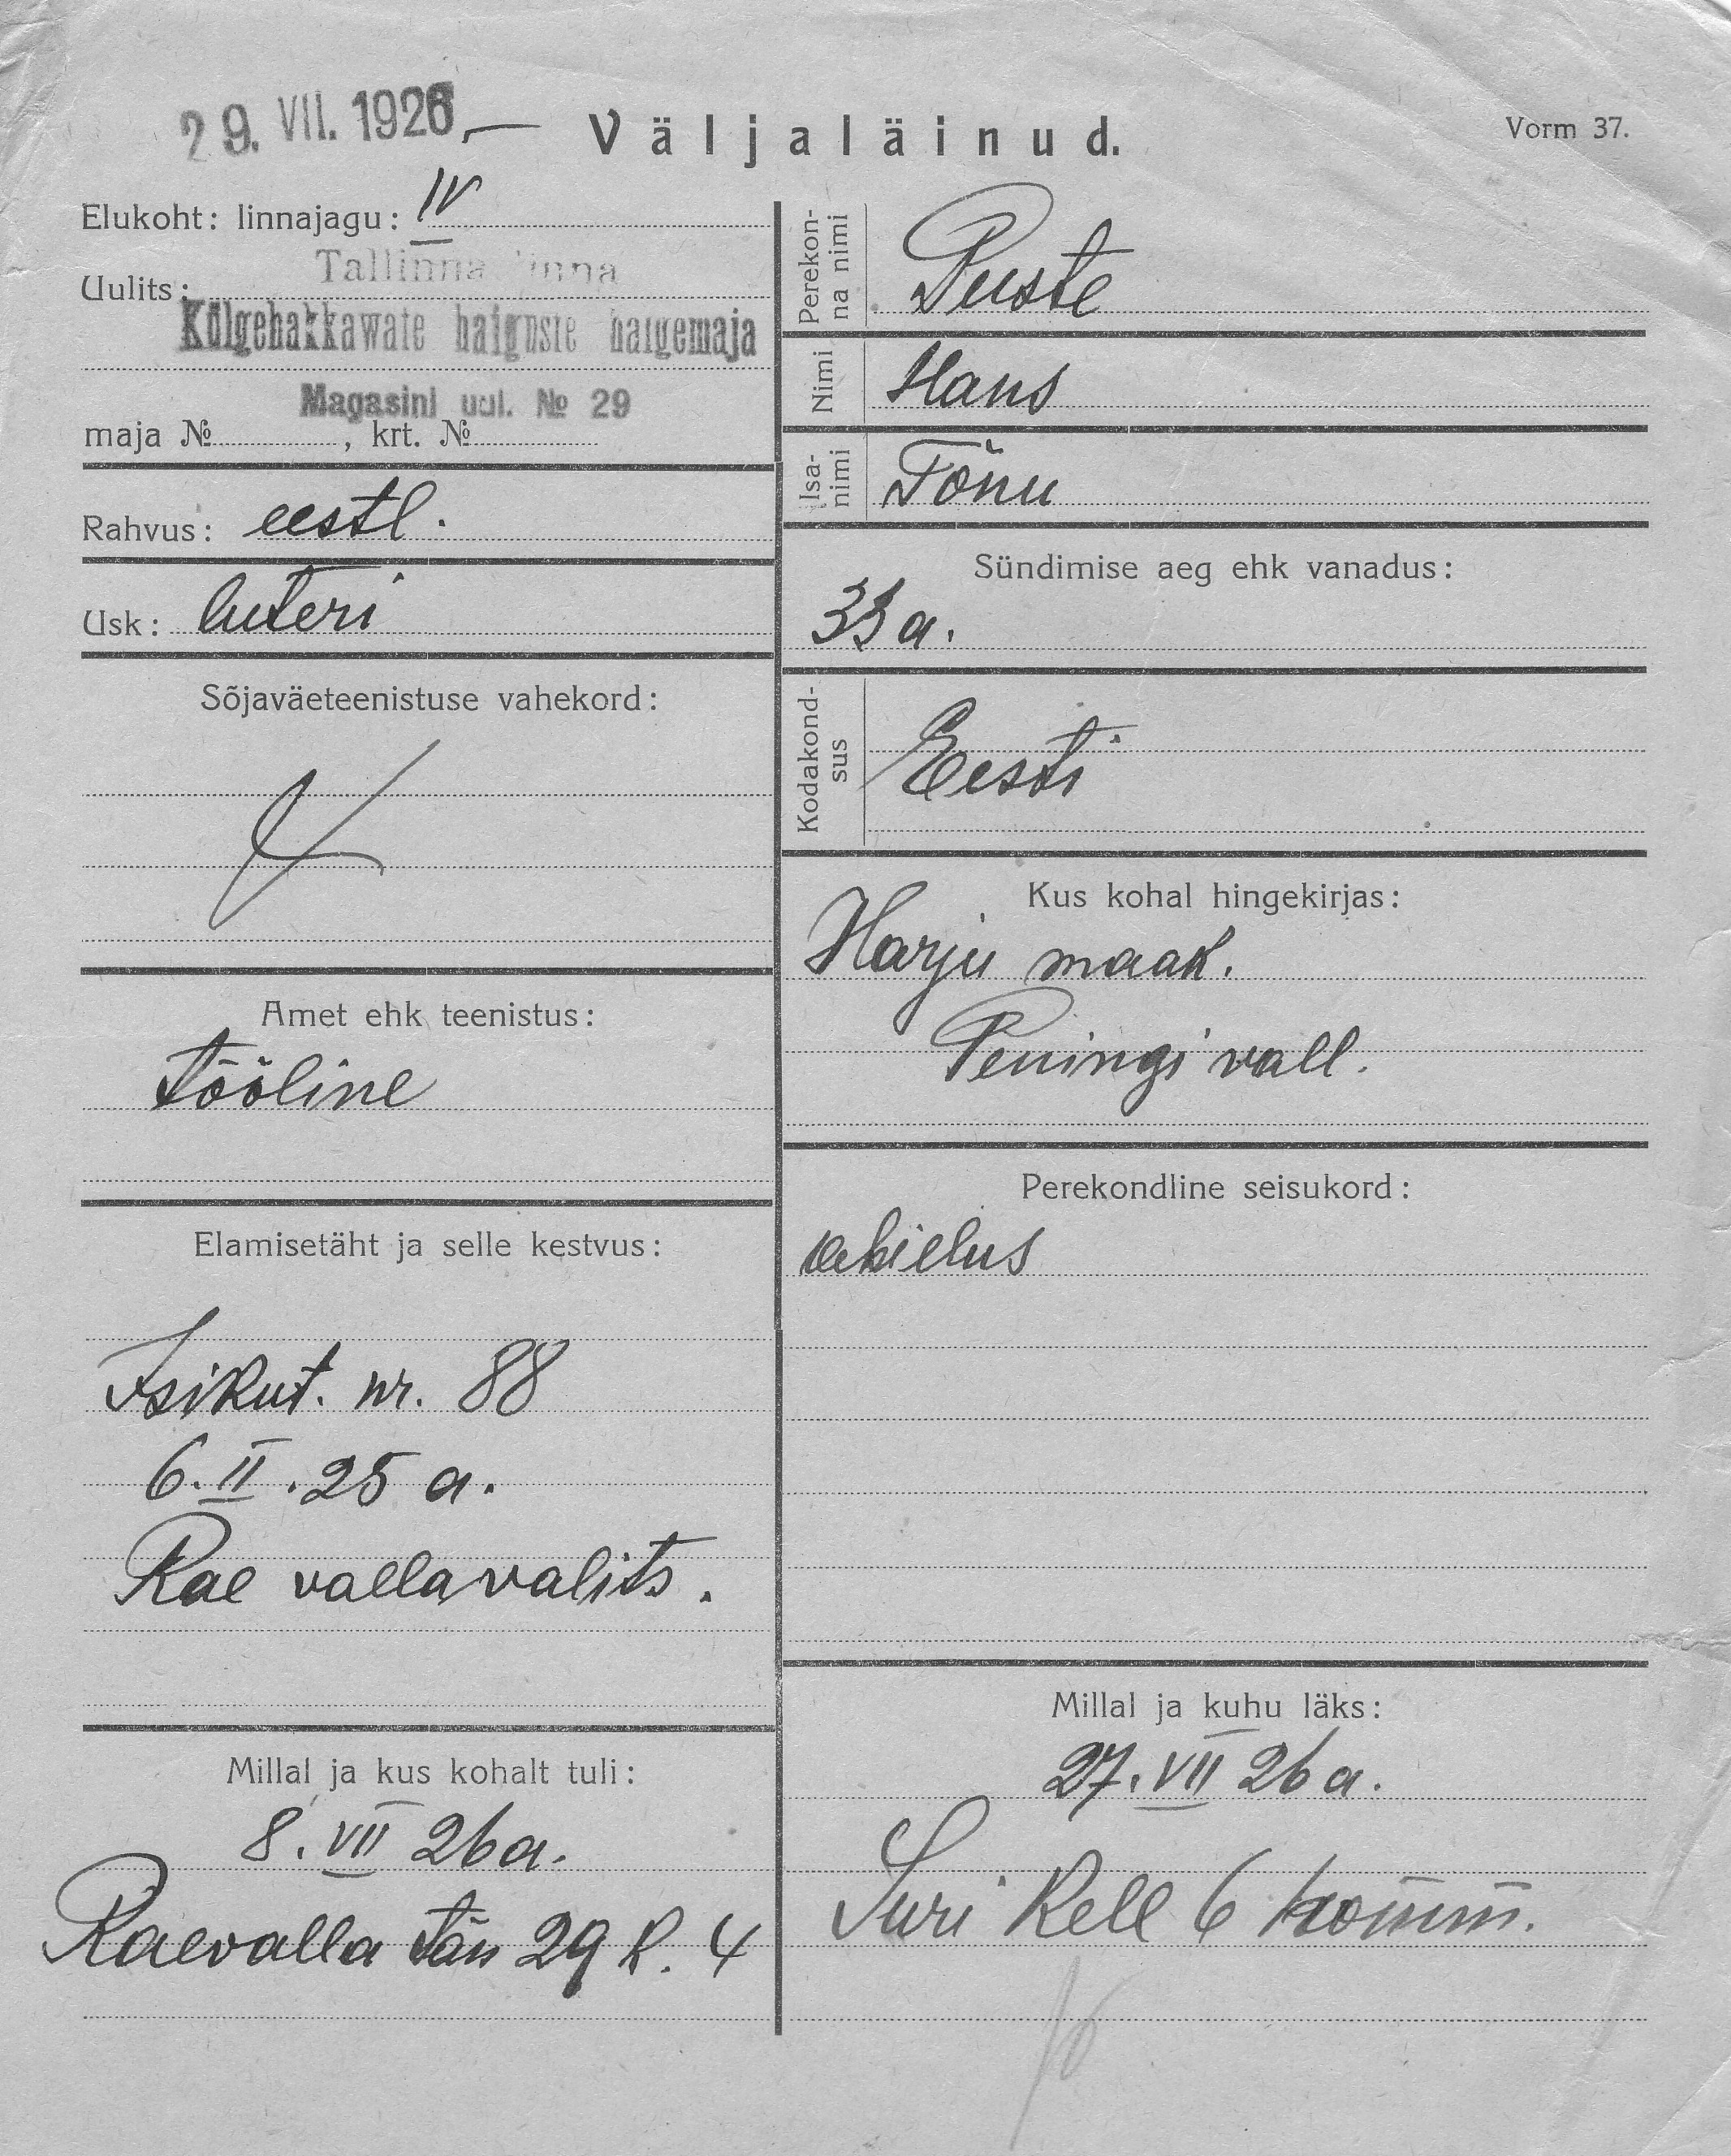 29. VII. 1926
Väljaläinud.
Vorm 37.
Elukoht: linnajagu: IV
Uulits:
Tallinna linna
Külgehakkawate haiguste haigemaja
Magasini uul. № 29
maja № , krt. №
Rahvus: eestl.
Usk: luteri
Sõjaväeteenistuse vahekord:
Amet ehk teenistus:
tööline
Elamisetäht ja selle kestvus:
Isikut. nr. 88
6. II. 25 a.
Rae vallavalits.
Millal ja kus kohalt tuli:
8. VII 26 a.
Raevalla tän 29 k. 4
Perekonna nimi
Puste
Nimi
Hans
Isanimi
Tõnu
Sündimise aeg ehk vanadus:
33 a.
Kodakondsus
Eesti
Kus kohal hingekirjas:
Harju maak.
Peningi vall.
Perekondline seisukord:
abielus
Millal ja kuhu läks:
27. VII 26 a.
Suri kell 6 homm.